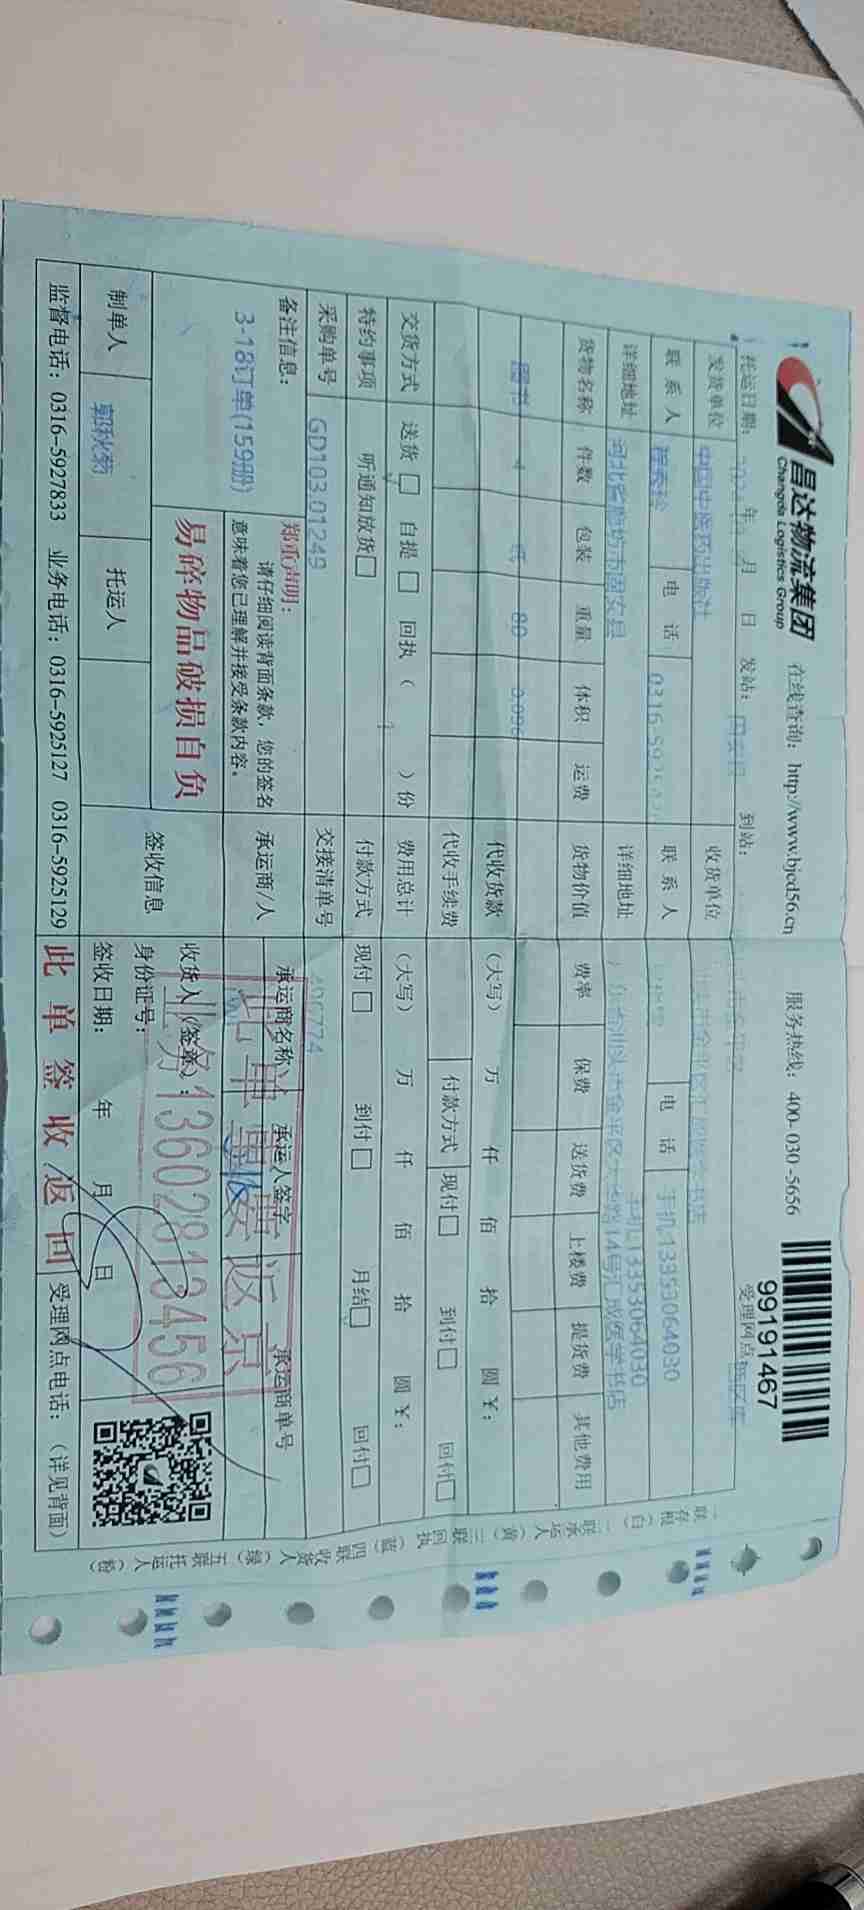 昌达物流集团
Changda Logistics Group
在线查询：http://www.bjcd56.cn
服务热线：400-030-5656
99191467
托运日期： 年 月 日 发站： 到站： 受理网点
发货单位 中国中医药出版社 收货单位
联系人 电话 联系人 电话 手机:13353064030
手机:13353064030
详细地址 河北省廊坊市固安县 详细地址
货物名称 件数 包装 重量 体积 运费 货物价值 费率 保费 送货费 上楼费 提货费 其他费用
图书 4 纸 80 0.096
代收货款 （大写） 万 仟 佰 拾 圆 ¥：
代收手续费 付款方式 现付□ 到付□ 回付□
交货方式 送货□ 自提□ 回执（ 1 ）份 费用总计 （大写） 万 仟 佰 拾 圆 ¥：
特约事项 听通知放货□ 付款方式 现付□ 到付□ 月结□ 回付□
采购单号 GD103.01249 交接清单号
备注信息：
3-18订单(159册)
郑重声明：
请仔细阅读背面条款，您的签名
意味着您已理解并接受条款内容。
易碎物品破损自负
承运商/人 承运商名称 承运人签字 承运商单号
此单要返京
业务13602813456
签收信息 收货人（签章）：
身份证号：
签收日期： 年 月 日
制单人 郭秋菊 托运人
监督电话：0316-5927833 业务电话：0316-5925127 0316-5925129 此单签收返回 受理网点电话：（详见背面）
一联存根（白）二联承运人（黄）三联回执（蓝）四联收货人（绿）五联托运人（粉）